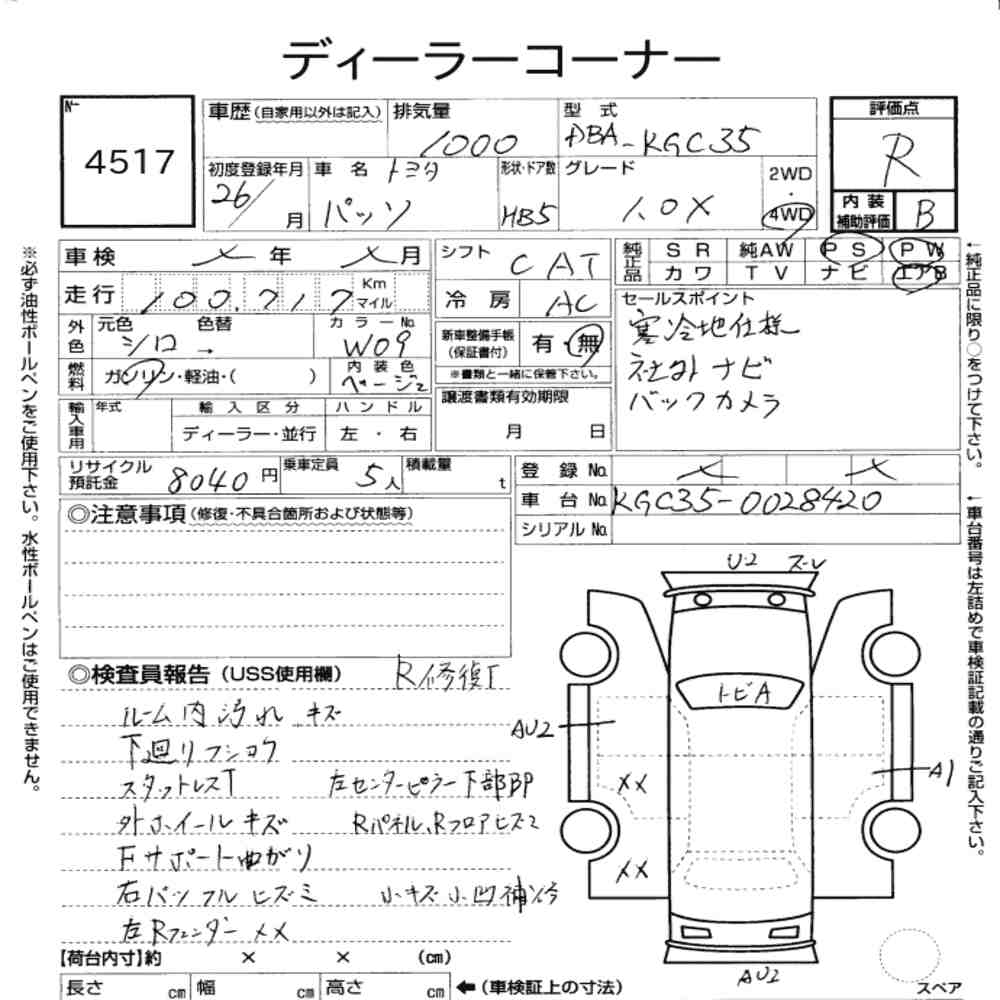 ディーラーコーナー
№
4517
車歴(自家用以外は記入)
排気量
1000
型 式
DBA-KGC35
評価点
R
初度登録年月
26/
月
車 名
トヨタ
パッソ
形状・ドア数
HB5
グレード
1.0X
2WD
・
4WD
内 装
補助評価
B
車検
メ 年 メ 月
シフト
CAT
純正品
SR 純AW PS PW
カワ TV ナビ エアB
走行
100,717
Km
マイル
冷 房
AC
セールスポイント
寒冷地仕様
社外ナビ
バックカメラ
外色
元色
シロ
色替
→
カラーNo.
W09
新車整備手帳
(保証書付)
有・無
※書類と一緒に保管下さい。
燃料
ガソリン・軽油・( )
内 装 色
ベージュ
譲渡書類有効期限
月 日
輸入車用
年式
輸 入 区 分
ディーラー・並行
ハ ン ド ル
左 ・ 右
リサイクル
預託金
8040円
乗車定員
5人
積載量
t
登 録 No.
メ メ
車 台 No.
KGC35-0028420
シリアル No.
◎注意事項(修復・不具合箇所および状態等)
◎検査員報告(USS使用欄)
R修復T
ルーム内汚れ キズ
下廻リフショク
スタットレスT 左センターピラー下部BP
外ホイールキズ Rパネル、Rフロアヒズミ
Fサポート曲がり
右バッフルヒズミ 小キズ小凹補修
左Rフェンダーメメ
U2 スーレ
トビA
AU2
A1
××
××
AU2
スペア
【荷台内寸】約 × × (cm)
長さ cm 幅 cm 高さ cm
←(車検証上の寸法)
※必ず油性ボールペンをご使用下さい。水性ボールペンはご使用できません。
←純正品に限り○をつけて下さい。
←車台番号は左詰めで車検証記載の通りご記入下さい。